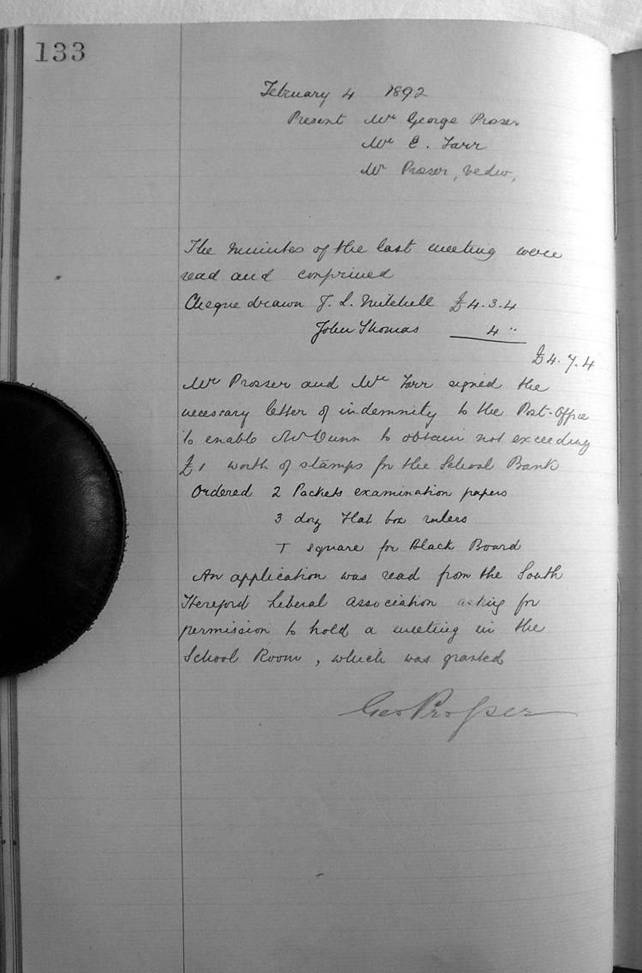 133
February 4 1892
Present Mr George Prosser
Mr E. Farr
Mr Prosser, Vedw,
The minutes of the last meeting were
read and confirmed
Cheque drawn J. L. Mitchell £4.3.4
John Thomas 4 "
£4.7.4
Mr Prosser and Mr Farr signed the
necessary letter of indemnity to the Post-Office
to enable Mr Dunn to obtain not exceeding
£1 worth of stamps for the School Bank
Ordered 2 Packets examination papers
3 doz Flat box rulers
T square for Black Board
An application was read from the South
Hereford Liberal Association asking for
permission to hold a meeting in the
School Room, which was granted
Geo Prosser